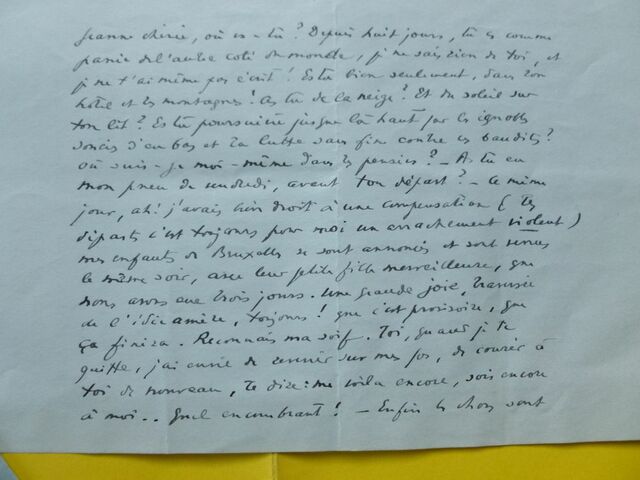 Jeanne chérie, où es-tu? Depuis huit jours, tu es comme
partie de l'autre coté du monde, je ne sais rien de toi, et
je ne t'ai même pas écrit! Es tu bien seulement, dans ton
hotel et tes montagnes? As tu de la neige? Et du soleil sur
ton lit? Es tu poursuivie jusque là haut par les ignobles
soucis d'en bas et ta lutte sans fin contre ces bandits?
où suis-je moi-même dans tes pensées? — As tu eu
mon pneu de vendredi, avant ton départ? — Ce même
jour, ah! j'avais bien droit à une compensation (tes
départs c'est toujours pour moi un arrachement violent)
mes enfants de Bruxelles se sont annoncés et sont venus
le même soir, avec leur petite fille merveilleuse, que
nous avons eue trois jours. Une grande joie, traversée
de l'idée amère, toujours! que c'est provisoire, que
ça finira. Reconnais ma soif. Toi, quand je te
quitte, j'ai envie de revenir sur mes pas, de courir à
toi de nouveau, te dire: me voilà encore, sois encore
à moi.. Quel encombrant! — Enfin les choses sont